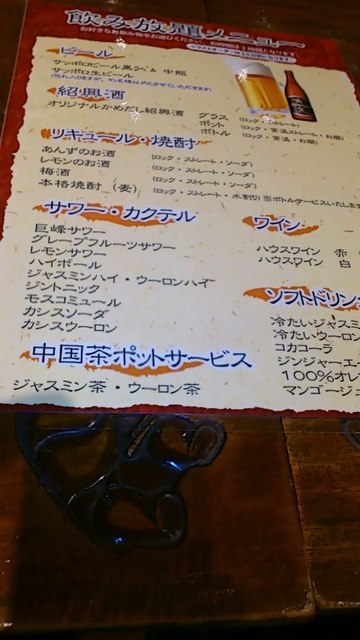 飲み放題メニュー
ビール
サッポロビール黒ラベル 中瓶
サッポロ生ビール
紹興酒
オリジナルかめだし紹興酒
グラス (ロック・ストレート)
ポット (ロック・常温ストレート・お燗)
ボトル (ロック・常温・お燗)
リキュール・焼酎
あんずのお酒 (ロック・ストレート・ソーダ)
レモンのお酒 (ロック・ストレート・ソーダ)
梅酒 (ロック・ストレート・ソーダ)
本格焼酎(麦) (ロック・ストレート・水割り) ※ボトルサービスいたします
サワー・カクテル
巨峰サワー
グレープフルーツサワー
レモンサワー
ハイボール
ジャスミンハイ・ウーロンハイ
ジントニック
モスコミュール
カシスソーダ
カシスウーロン
ワイン
ハウスワイン 赤
ハウスワイン 白
ソフトドリン
冷たいジャス
冷たいウーロン
コカコーラ
ジンジャーエー
100%オレ
マンゴージュ
中国茶ポットサービス
ジャスミン茶・ウーロン茶